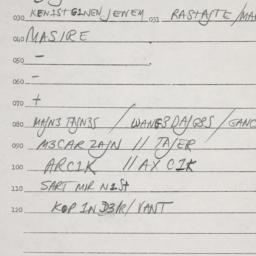 030 KENIST GINEN JEWEM 031 RASTAJTE/MA
040 MASIRE
050 –
060 –
070 +
080 MAJN3 TAJN3S / WANGBDAJQBS / GANC
090 M3CAR ZAJN // TAJER
100 ARCIK // AX CIK
110 SART MIR NIST
120 KOP IND3R/VANT